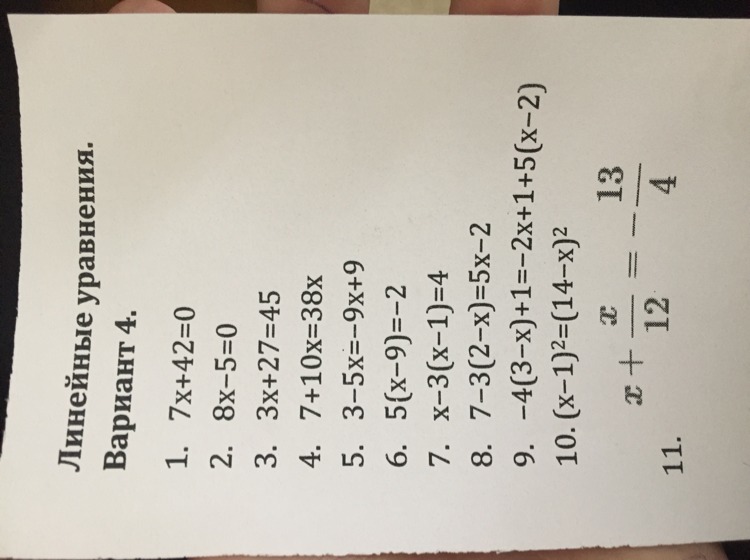 Линейные уравнения.
Вариант 4.
1. 7x+42=0
2. 8x−5=0
3. 3x+27=45
4. 7+10x=38x
5. 3−5x=−9x+9
6. 5(x−9)=−2
7. x−3(x−1)=4
8. 7−3(2−x)=5x−2
9. −4(3−x)+1=−2x+1+5(x−2)
10. (x−1)²=(14−x)²
11. x + x/12 = −13/4